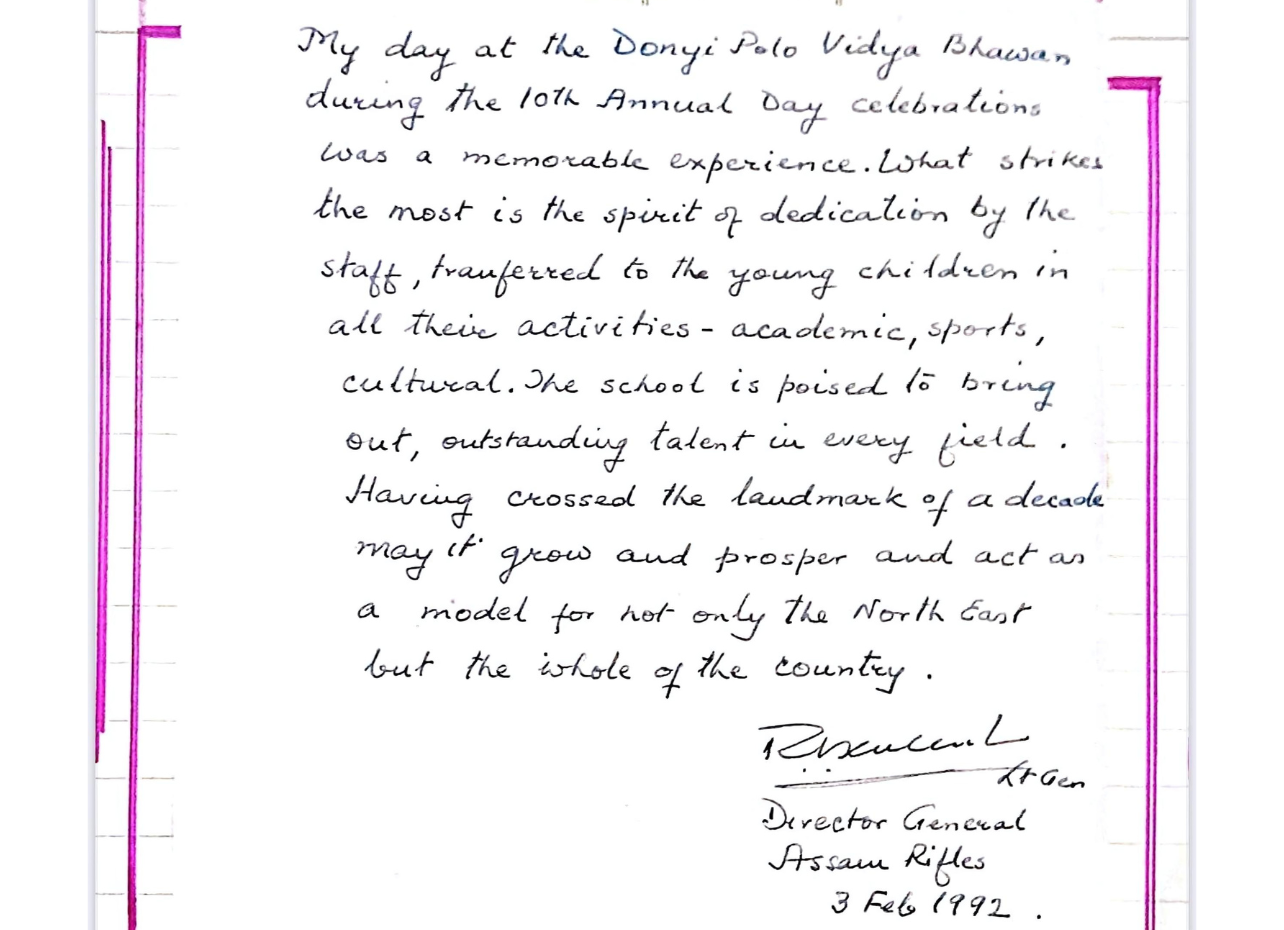 My day at the Donyi Polo Vidya Bhawan
during the 10th Annual Day celebrations
was a memorable experience. What strikes
the most is the spirit of dedication by the
staff, tranferred to the young children in
all their activities - academic, sports,
cultural. The school is poised to bring
out, outstanding talent in every field.
Having crossed the landmark of a decade
may it grow and prosper and act as
a model for not only the North East
but the whole of the country.
Lt Gen
Director General
Assam Rifles
3 Feb 1992.